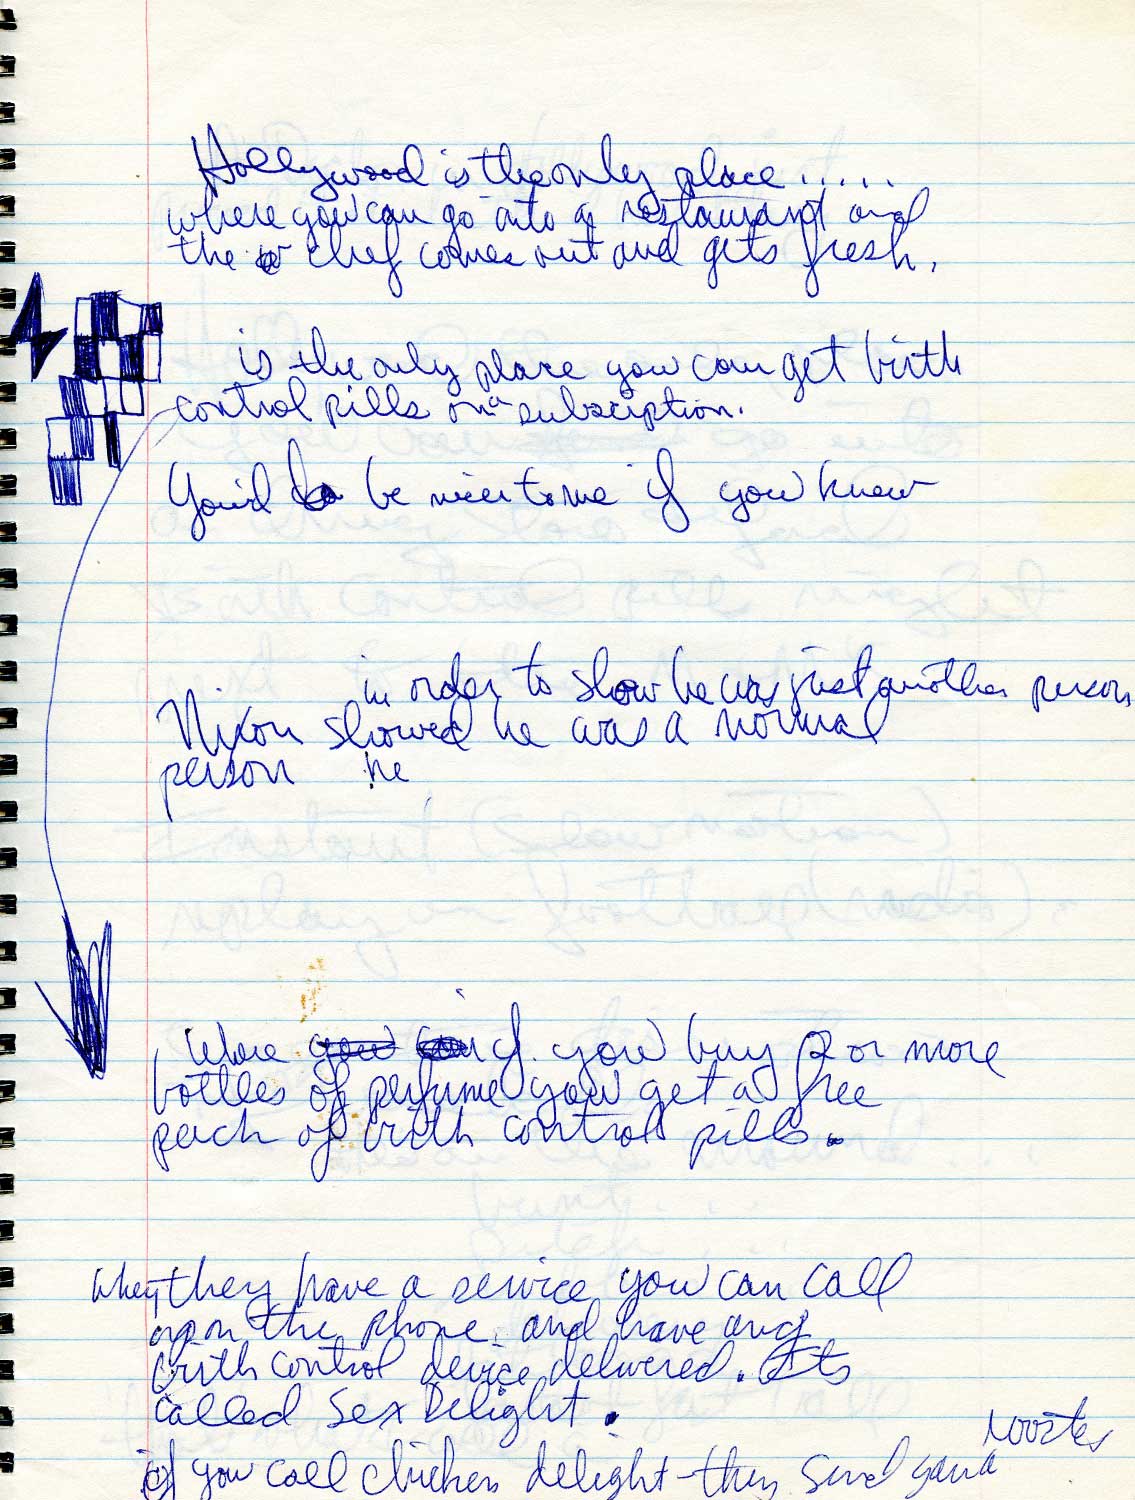 Hollywood is the only place.....
where you can go into a restaurant and
the chef comes out and gets fresh.
is the only place you can get birth
control pills on a subscription.
You'd be nicer to me if you knew
in order to show he was just another person
Nixon showed he was a normal
person he
Where you if you buy 2 or more
bottles of perfume you get a free
pack of birth control pills.
they have a service you can call
upon the phone and have any
birth control device delivered. Its
called Sex Delight.
rooster
if you call chicken delight - they send you a